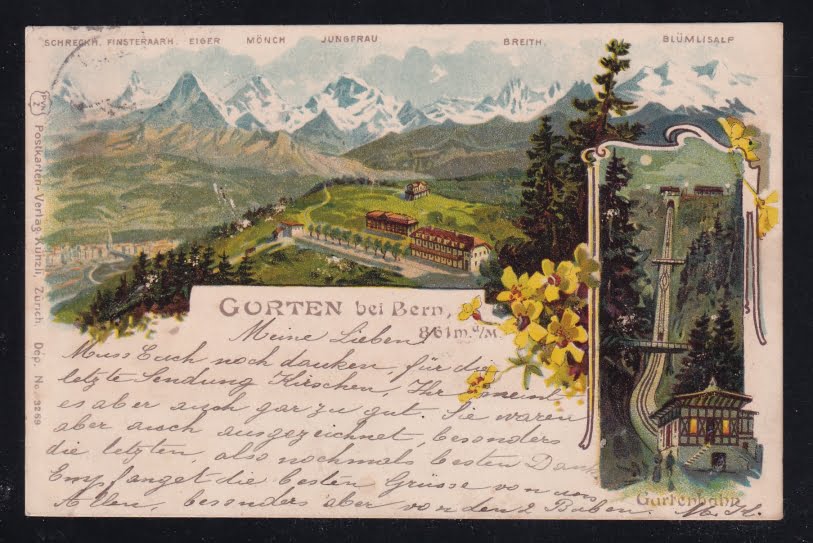 SCHRECKH. FINSTERAARH. EIGER MÖNCH JUNGFRAU BREITH. BLÜMLISALP
Postkarten-Verlag Künzli, Zürich. Dép. No. 3269
GURTEN bei Bern,
861m. ü/M.
Meine Lieben,
Muss Euch noch danken, für die
letzte Sendung Kirschen, Ihr meint
es aber auch gar zu gut. Sie waren
aber auch ausgezeichnet, besonders
die letzten, also nochmals besten Dank
Empfanget die besten Grüsse von uns
Allen, besonders aber von den 2 Buben.
Gurtenbahn